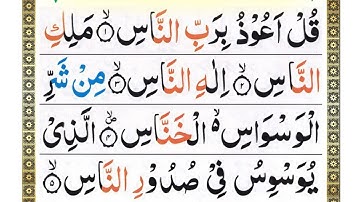 قُلْ اَعُوْذُ بِرَبِّ النَّاسِ ۙ﴿۱﴾ مَلِكِ
النَّاسِ ۙ﴿۲﴾ اِلٰهِ النَّاسِ ۙ﴿۳﴾ مِنْ شَرِّ
الْوَسْوَاسِ ۙ۬ الْخَنَّاسِ ۪ۙ﴿۴﴾ الَّذِیْ
یُوَسْوِسُ فِیْ صُدُوْرِ النَّاسِ ۙ﴿۵﴾